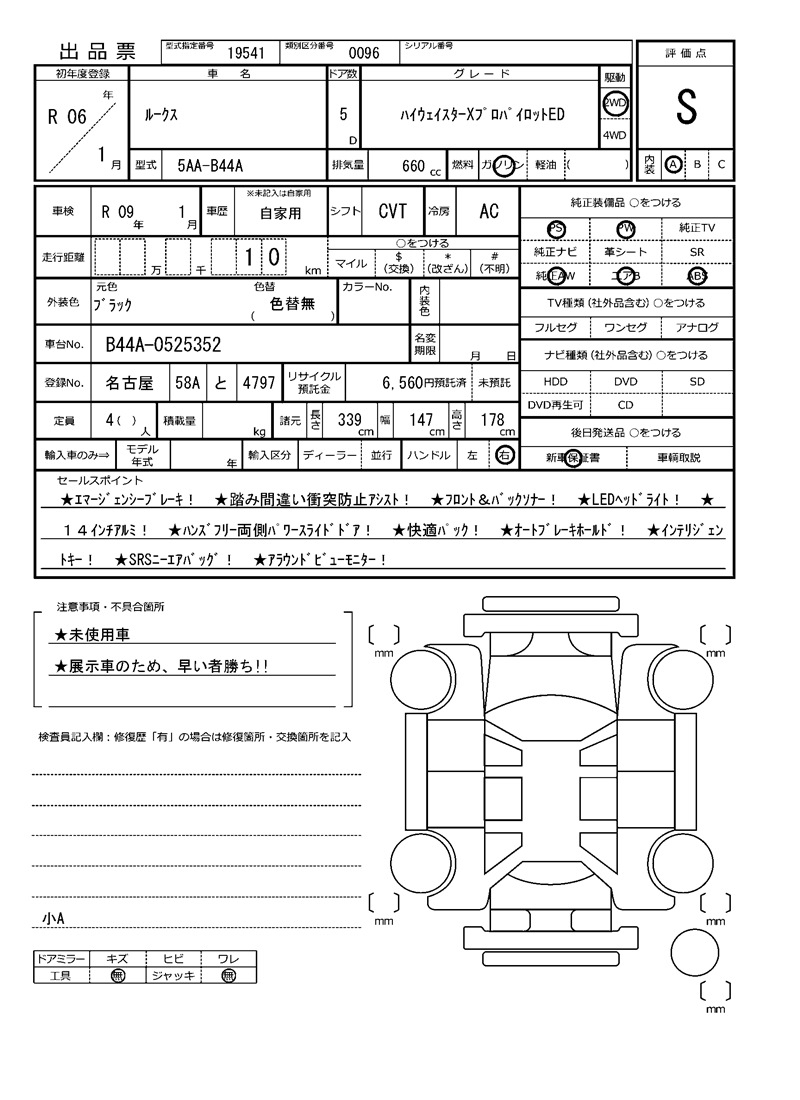 出品票 型式指定番号 19541 類別区分番号 0096 シリアル番号
評価点
S
内装 A B C
初年度登録 車名 ドア数 グレード 駆動
R 06 年 1 月 ルークス 5 D ﾊｲｳｪｲｽﾀｰXﾌﾟﾛﾊﾟｲﾛｯﾄED 2WD
4WD
型式 5AA-B44A 排気量 660 cc 燃料 ガソリン 軽油 ( )
車検 R 09 年 1 月 車歴 ※未記入は自家用 自家用 シフト CVT 冷房 AC
走行距離 万 千 1 0 km ○をつける
マイル $(交換) *(改ざん) #(不明)
外装色 元色 ﾌﾞﾗｯｸ 色替 ( 色替無 ) カラーNo. 内装色
車台No. B44A-0525352 名変期限 月 日
登録No. 名古屋 58A と 4797 リサイクル預託金 6,560円預託済 未預託
定員 4 ( ) 人 積載量 kg 諸元 長さ 339 cm 幅 147 cm 高さ 178 cm
輸入車のみ⇒ モデル年式 年 輸入区分 ディーラー 並行 ハンドル 左 右
純正装備品 ○をつける
PS PW 純正TV
純正ナビ 革シート SR
純正AW エアB ABS
TV種類(社外品含む)○をつける
フルセグ ワンセグ アナログ
ナビ種類(社外品含む)○をつける
HDD DVD SD
DVD再生可 CD
後日発送品 ○をつける
新車保証書 車輌取説
セールスポイント
★ｴﾏｰｼﾞｪﾝｼｰﾌﾞﾚｰｷ！ ★踏み間違い衝突防止ｱｼｽﾄ！ ★ﾌﾛﾝﾄ＆ﾊﾞｯｸｿﾅｰ！ ★LEDﾍｯﾄﾞﾗｲﾄ！ ★
１４ｲﾝﾁｱﾙﾐ！ ★ﾊﾝｽﾞﾌﾘｰ両側ﾊﾟﾜｰｽﾗｲﾄﾞﾄﾞｱ！ ★快適ﾊﾟｯｸ！ ★ｵｰﾄﾌﾞﾚｰｷﾎｰﾙﾄﾞ！ ★ｲﾝﾃﾘｼﾞｪﾝ
ﾄｷｰ！ ★SRSﾆｰｴｱﾊﾞｯｸﾞ！ ★ｱﾗｳﾝﾄﾞﾋﾞｭｰﾓﾆﾀｰ！
注意事項・不具合箇所
★未使用車
★展示車のため、早い者勝ち!!
検査員記入欄：修復歴「有」の場合は修復箇所・交換箇所を記入
小A
ドアミラー キズ ヒビ ワレ
工具 無 ジャッキ 無
mm
mm
mm
mm
mm